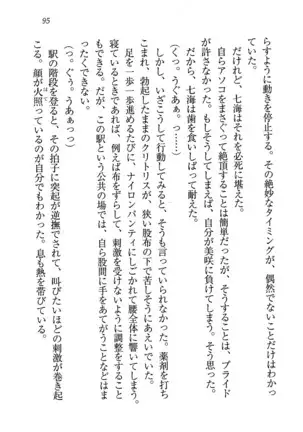 95
らすように動きを停止する。その絶妙なタイミングが、偶然でないことだけはわかっ
た。
だけれど、七海はそれを必死に堪えた。
自らアソコをまさぐって絶頂することは簡単だったが、そうすることは、プライド
が許さなかった。もしそうしてしまえば、自分が美咲に負けてしまう。そう思った。
だから、七海は歯を食いしばって耐えた。
（くっ。うぐぁぁ…っ）
しかし、いざこうして行動してみると、そうも言っていられなかった。薬剤を打ち
込まれ、勃起したままのクリトリスが、狭い股布の下で苦しそうにあえいでいた。
足を一歩一歩進めるたびに、ナイロンパンティにしごかれて腰全体に響いてしまう。
寝ているときであれば、例えば布をずらして、刺激を受けないように調整をすること
もできた。だが、この駅という公共の場では、自ら股間に手をあてがうことなどはま
ったくできない。
（くっ。ぐぅ。うあぁっっ）
駅の階段を登ると、その拍子に突起が逆撫でされて、叫びたいほどの刺激が巻き起
こる。顔が火照っているのが自分でもわかった。息も熱を帯びている。